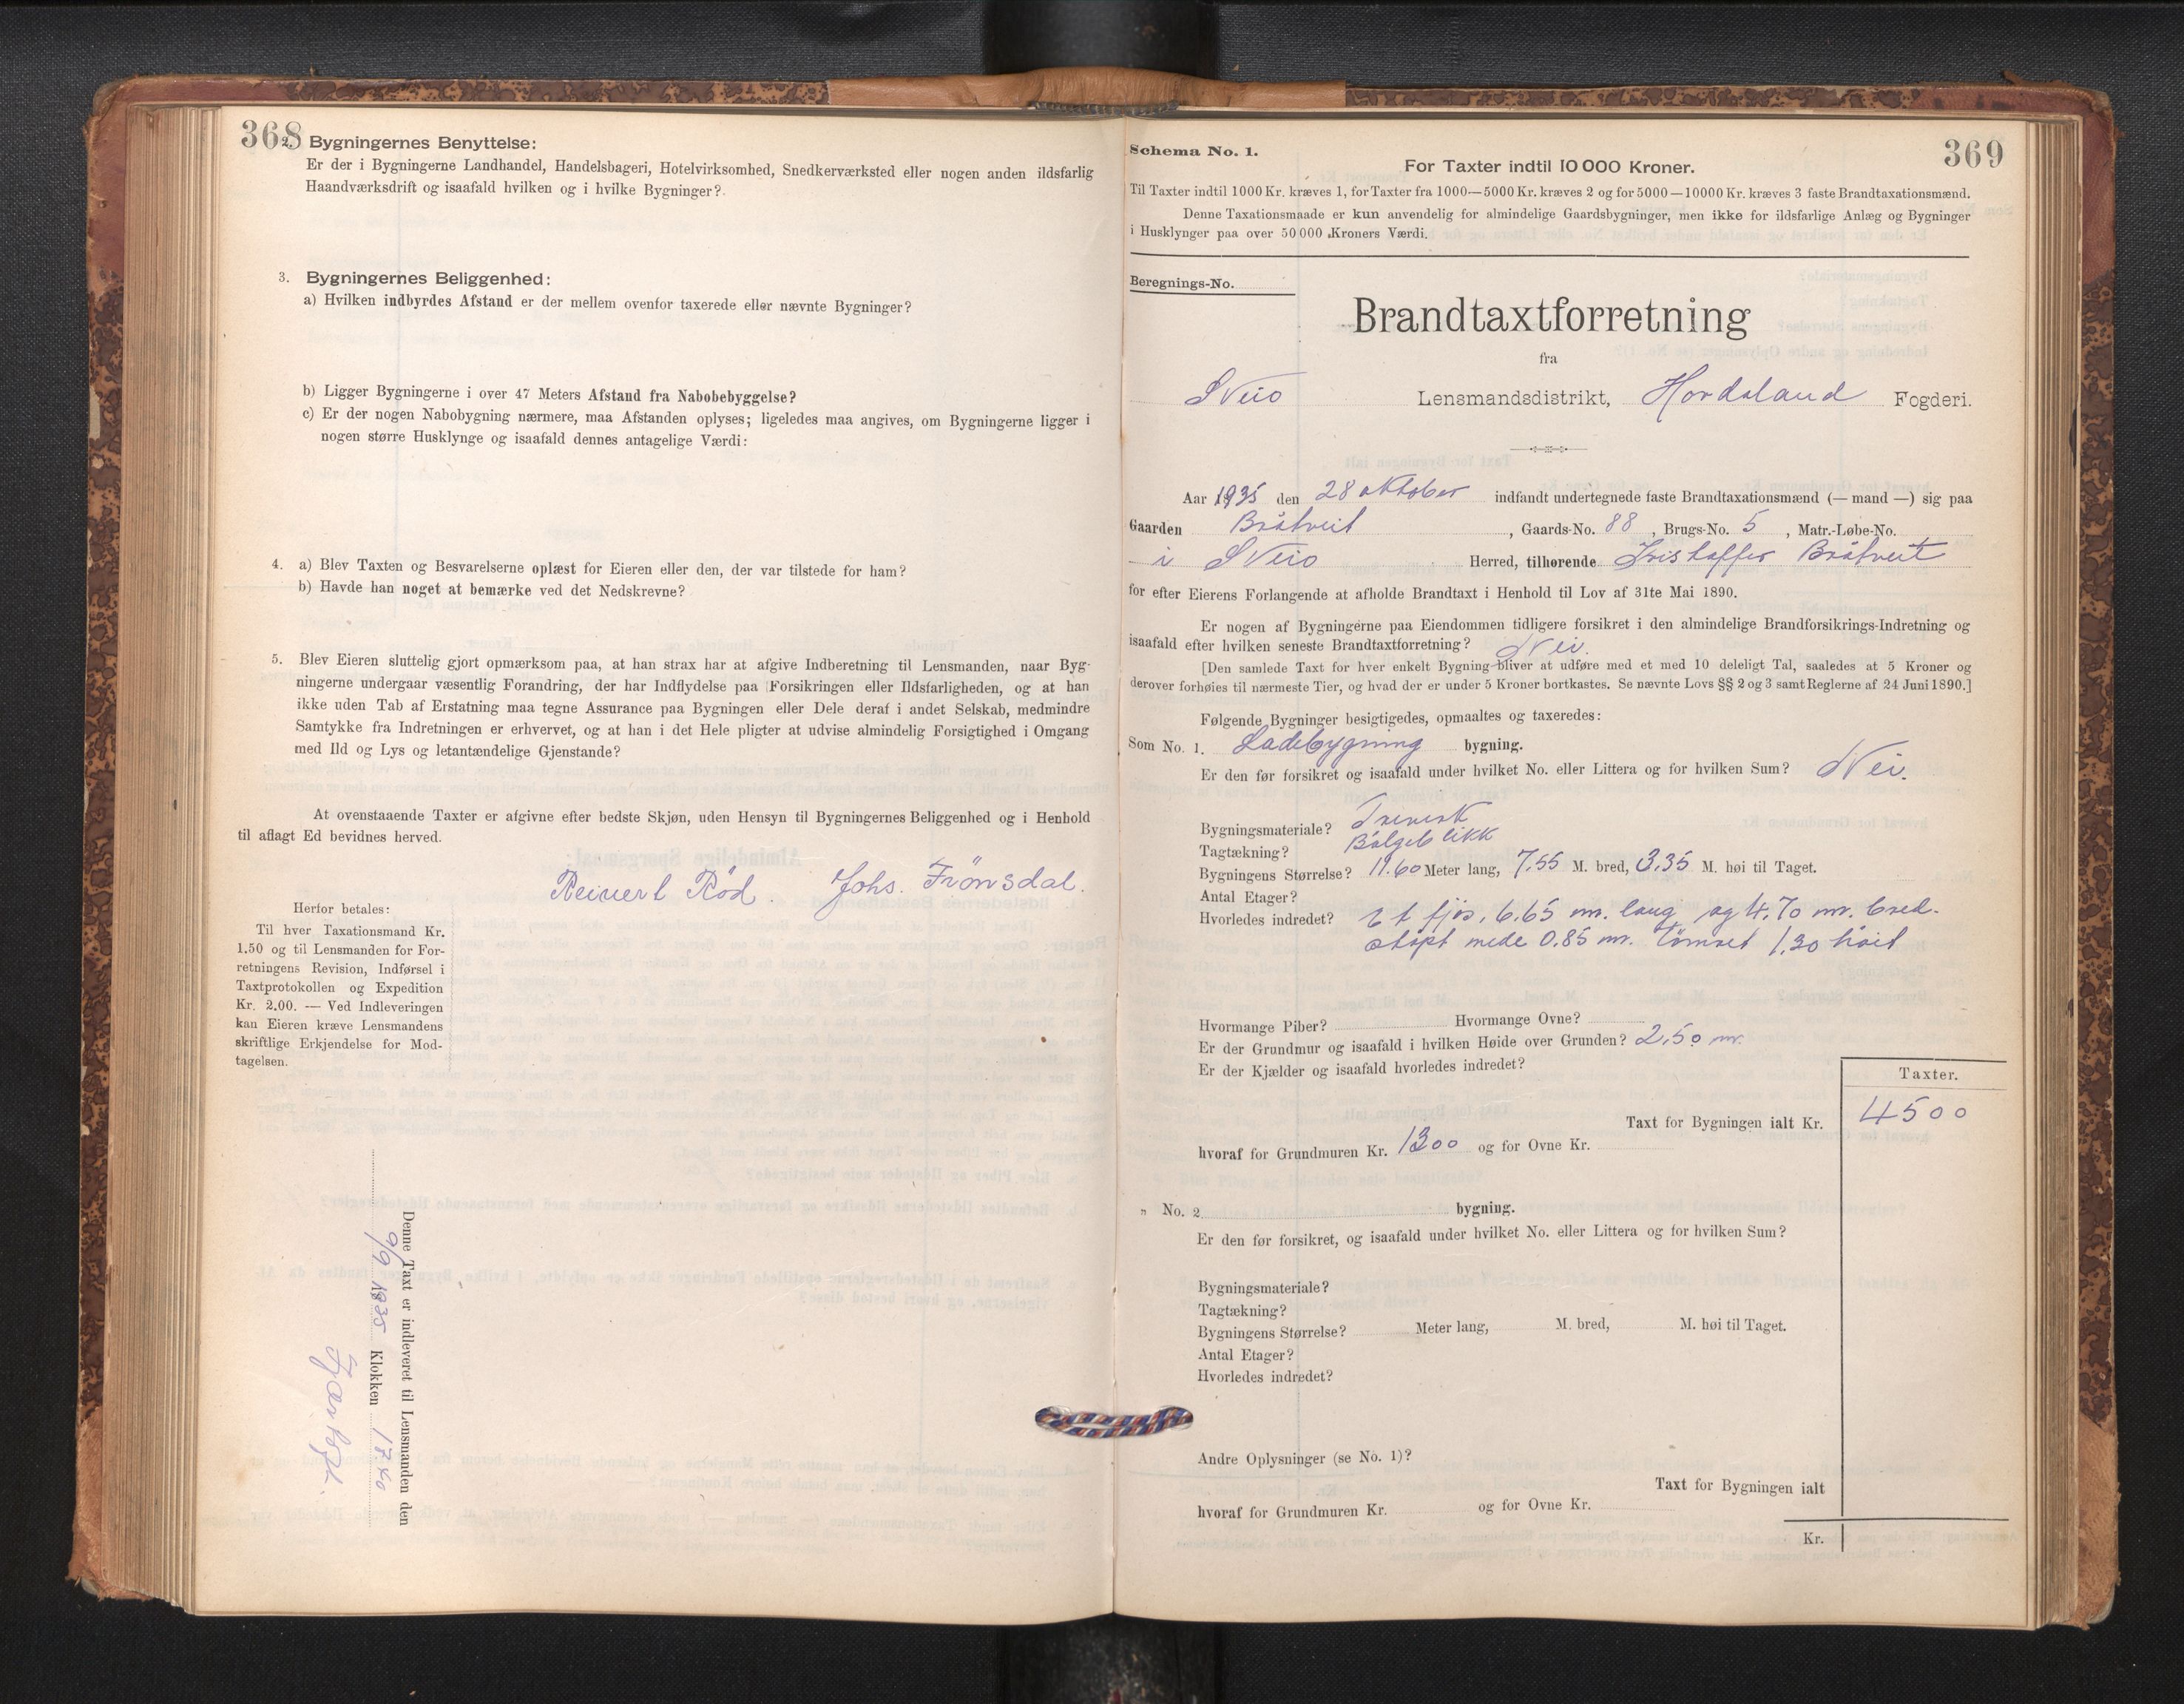 368
2. Bygningernes Benyttelse:
Er der i Bygningerne Landhandel, Handelsbageri, Hotelvirksomhed, Snedkerværksted eller nogen anden ildsfarlig
Haandværksdrift og isaafald hvilken og i hvilke Bygninger?
3. Bygningernes Beliggenhed:
a) Hvilken indbyrdes Afstand er der mellem ovenfor taxerede eller nævnte Bygninger?
b) Ligger Bygningerne i over 47 Meters Afstand fra Nabobebyggelse?
c) Er der nogen Nabobygning nærmere, maa Afstanden oplyses; ligeledes maa angives, om Bygningerne ligger i
nogen større Husklynge og isaafald dennes antagelige Værdi:
4. a) Blev Taxten og Besvarelserne oplæst for Eieren eller den, der var tilstede for ham?
b) Havde han noget at bemærke ved det Nedskrevne?
5. Blev Eieren sluttelig gjort opmærksom paa, at han strax har at afgive Indberetning til Lensmanden, naar Byg-
ningerne undergaar væsentlig Forandring, der har Indflydelse paa Forsikringen eller Ildsfarligheden, og at han
ikke uden Tab af Erstatning maa tegne Assurance paa Bygningen eller Dele deraf i andet Selskab, medmindre
Samtykke fra Indretningen er erhvervet, og at han i det Hele pligter at udvise almindelig Forsigtighed i Omgang
med Ild og Lys og letantændelige Gjenstande?
At ovenstaaende Taxter er afgivne efter bedste Skjøn, uden Hensyn til Bygningernes Beliggenhed og i Henhold
til aflagt Ed bevidnes herved.
Reinert Rød. Johs. Frönsdal.
Herfor betales:
Til hver Taxationsmand Kr.
1.50 og til Lensmanden for For-
retningens Revision, Indførsel i
Taxtprotokollen og Expedition
Kr. 2.00. — Ved Indleveringen
kan Eieren kræve Lensmandens
skriftlige Erkjendelse for Mod-
tagelsen.
Denne Taxt er indleveret til Lensmanden den
9/9 1935 Klokken 17 40
369
Schema No. 1.
For Taxter indtil 10 000 Kroner.
Til Taxter indtil 1000 Kr. kræves 1, for Taxter fra 1000—5000 Kr. kræves 2 og for 5000—10000 Kr. kræves 3 faste Brandtaxationsmænd.
Denne Taxationsmaade er kun anvendelig for almindelige Gaardsbygninger, men ikke for ildsfarlige Anlæg og Bygninger
i Husklynger paa over 50 000 Kroners Værdi.
Beregnings-No.
Brandtaxtforretning
fra
Sveio Lensmandsdistrikt, Hordaland Fogderi.
Aar 1935 den 28 oktober indfandt undertegnede faste Brandtaxationsmænd (— mand —) sig paa
Gaarden Bråtveit, Gaards-No. 88, Brugs-No. 5, Matr.-Løbe-No.
i Sveio Herred, tilhørende Kristoffer Bråtveit
for efter Eierens Forlangende at afholde Brandtaxt i Henhold til Lov af 31te Mai 1890.
Er nogen af Bygningerne paa Eiendommen tidligere forsikret i den almindelige Brandforsikrings-Indretning og
isaafald efter hvilken seneste Brandtaxtforretning? Nei.
[Den samlede Taxt for hver enkelt Bygning bliver at udføre med et med 10 deleligt Tal, saaledes at 5 Kroner og
derover forhøies til nærmeste Tier, og hvad der er under 5 Kroner bortkastes. Se nævnte Lovs §§ 2 og 3 samt Reglerne af 24 Juni 1890.]
Følgende Bygninger besigtigedes, opmaaltes og taxeredes:
Som No. 1. Ladebygning bygning.
Er den før forsikret og isaafald under hvilket No. eller Littera og for hvilken Sum? Nei.
Bygningsmateriale? Treverk
Tagtækning? Bølgeblikk
Bygningens Størrelse? 11.60 Meter lang, 7,55 M. bred, 3,35 M. høi til Taget.
Antal Etager?
Hvorledes indredet? et fjøs, 6.65 m. lang og 4.70 m. bred.
støpt mede 0.85 m. tömret 1,30 höit
Hvormange Piber? Hvormange Ovne?
Er der Grundmur og isaafald i hvilken Høide over Grunden? 2.50 m.
Er der Kjælder og isaafald hvorledes indredet?
Taxter.
Taxt for Bygningen ialt Kr. 4500
hvoraf for Grundmuren Kr. 1300 og for Ovne Kr.
" No. 2 bygning.
Er den før forsikret, og isaafald under hvilket No. eller Littera og for hvilken Sum?
Bygningsmateriale?
Tagtækning?
Bygningens Størrelse? Meter lang, M. bred, M. høi til Taget.
Antal Etager?
Hvorledes indredet?
Andre Oplysninger (se No. 1)?
Taxt for Bygningen ialt
hvoraf for Grundmuren Kr. og for Ovne Kr.
Kr.